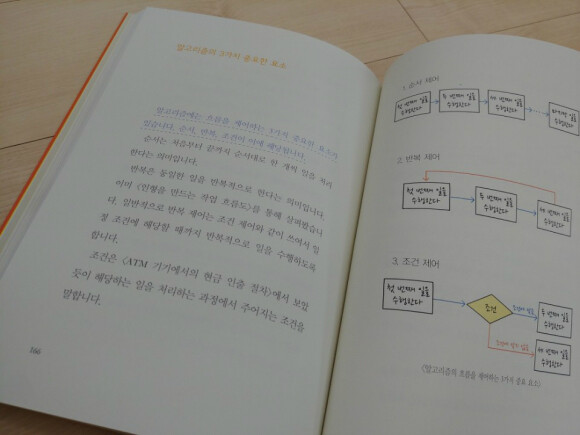 알고리즘의 3가지 중요한 요소
알고리즘에는 흐름을 제어하는 3가지 중요한 요소가
있습니다. 순서, 반복, 조건이 이에 해당합니다.
순서는 처음부터 끝까지 순서대로 한 개씩 일을 처리
한다는 의미입니다.
반복은 동일한 일을 반복적으로 한다는 의미입니다.
이미 〈인형을 만드는 작업 흐름도〉를 통해 살펴봤습니
다. 일반적으로 반복 제어는 조건 제어와 같이 쓰여서 일
정 조건에 해당할 때까지 반복적으로 일을 수행하도록
합니다.
조건은 〈ATM 기기에서의 현금 인출 절차〉에서 보았
듯이 해당하는 일을 처리하는 과정에서 주어지는 조건을
말합니다.
166
1. 순서 제어
첫 번째 일을
수행한다
두 번째 일을
수행한다
세 번째 일을
수행한다
마지막 일을
수행한다
2. 반복 제어
첫 번째 일을
수행한다
두 번째 일을
수행한다
세 번째 일을
수행한다
3. 조건 제어
첫 번째 일을
수행한다
조건
두 번째 일을
수행한다
세 번째 일을
수행한다
〈알고리즘의 흐름을 제어하는 3가지 중요 요소〉